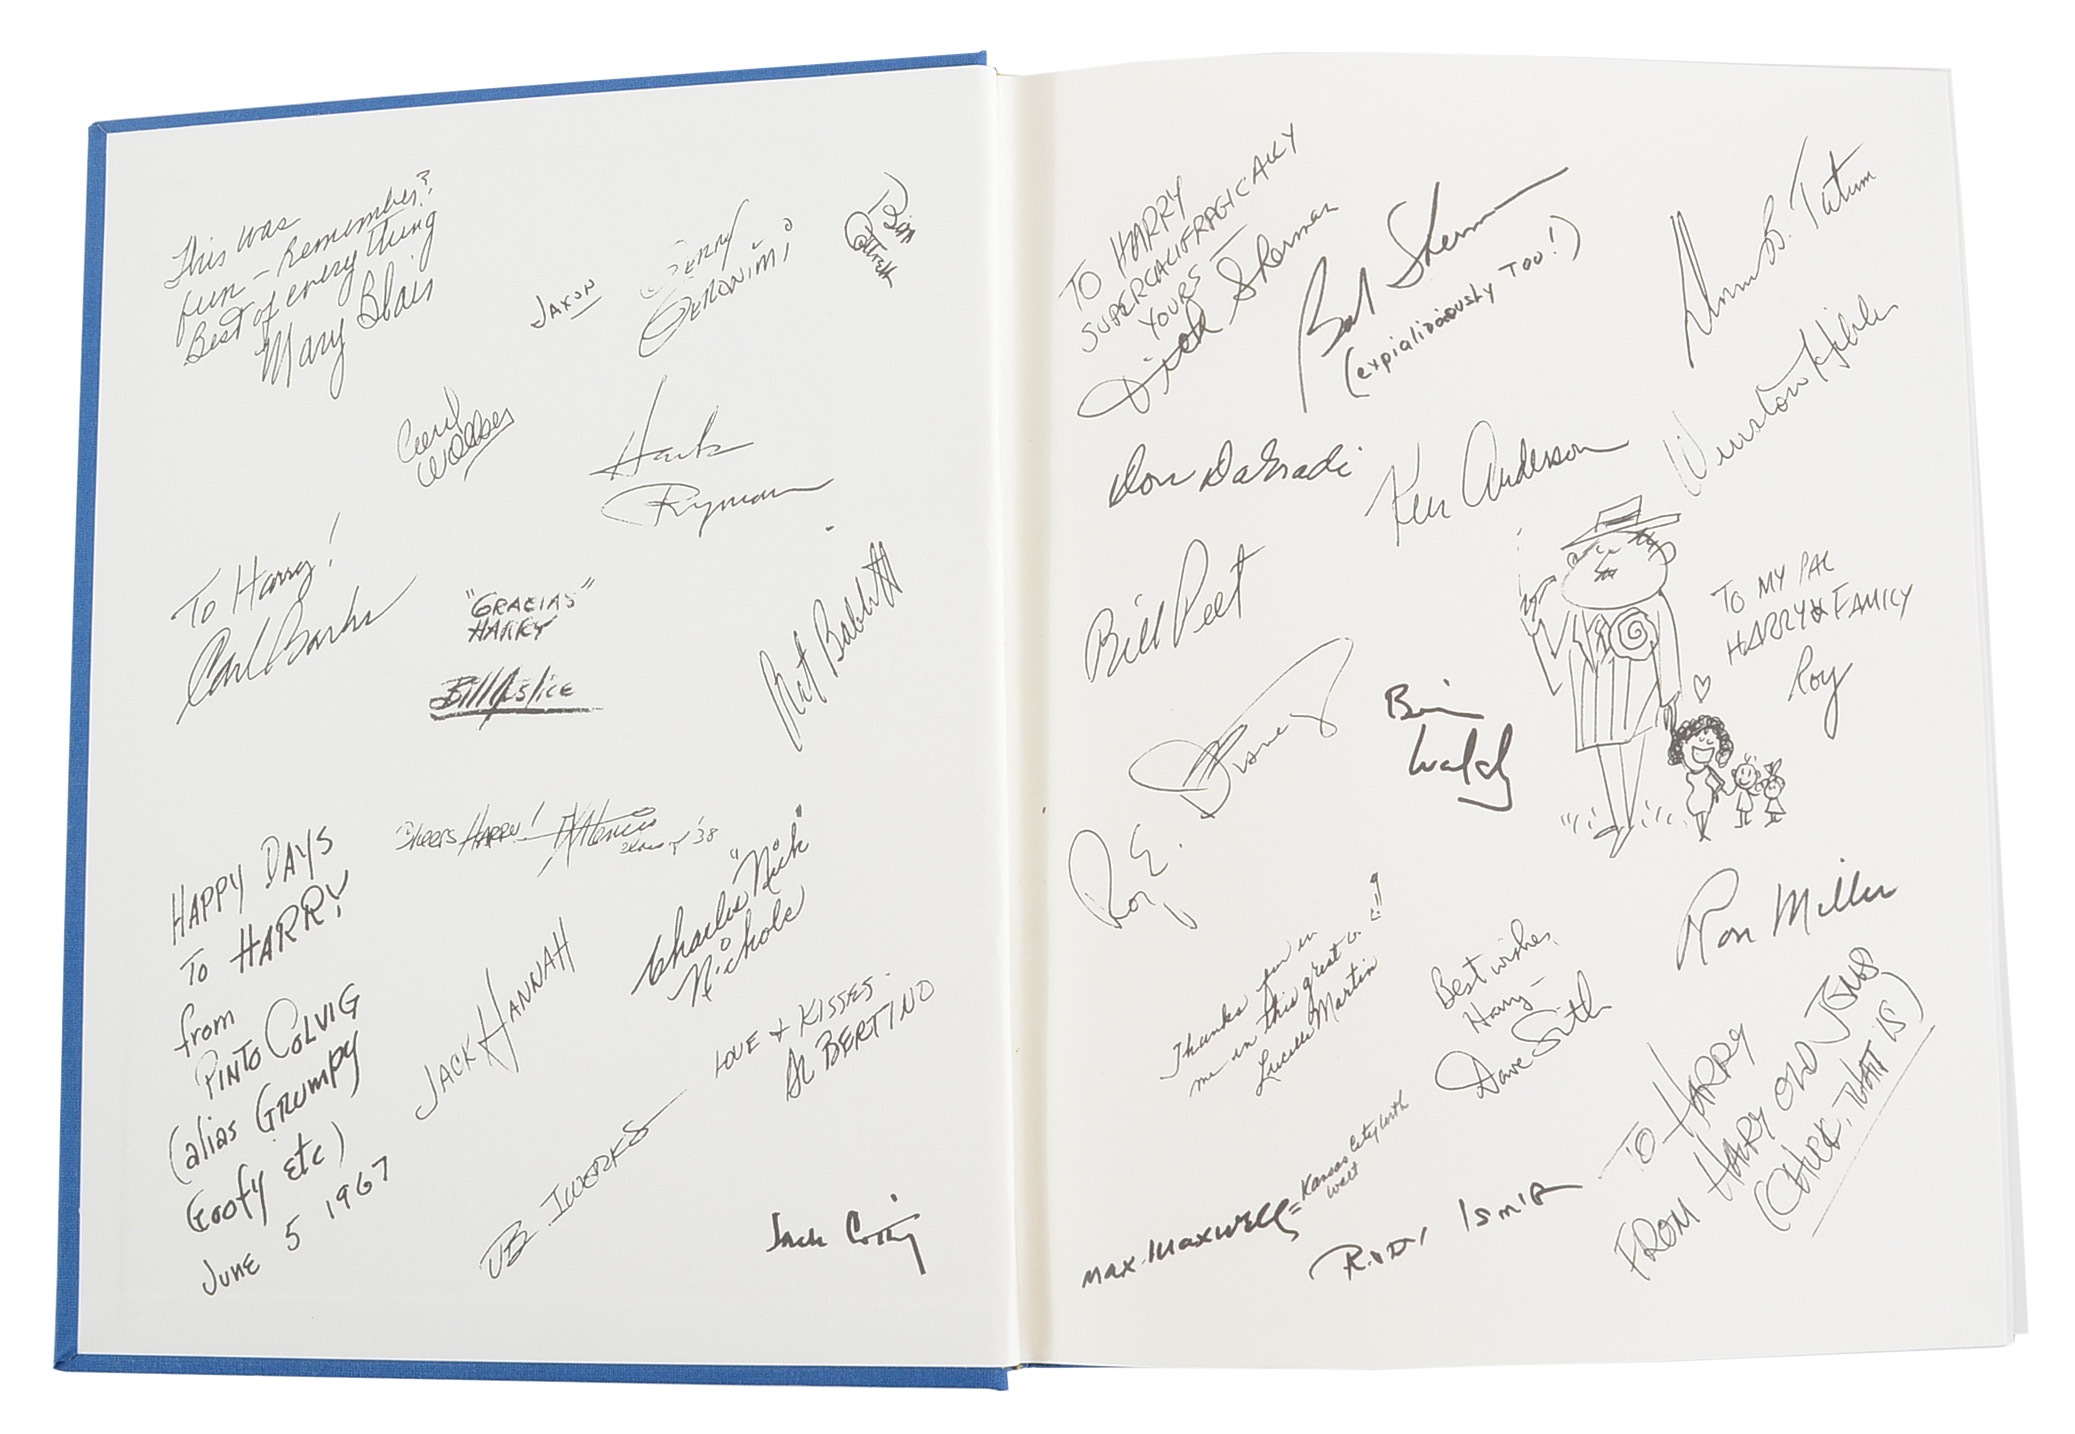 This was
fun - Remember?
Best of every thing
Mary Blair
JAXON
GERRY
GERONIMI
Bill
Cottrell
Carol
Hank
Rymon
To Harry!
Carl Barks
"GRACIAS"
HARRY
Bill Justice
Art Babbitt
Cheers HARRY!
class of '38
HAPPY DAYS
To HARRY
from
PINTO COLVIG
(alias GRUMPY
Goofy etc)
June 5 1967
JACK HANNAH
Charles "Nick"
Nichols
LOVE + KISSES -
AL BERTINO
UB IWERKS
Jack Cutting
TO HARRY
SUPERCALIFRAGICALLY
YOURS —
Dick Sherman
Bob Sherman
(expialidociously TOO!)
Donn B. Tatum
Winston Hibler
Don DaGradi
Ken Anderson
Bill Peet
TO MY PAL
HARRY & FAMILY
Roy
Roy E. Disney
Bill
Walsh
Ron Miller
Thanks for in
me in this great
Lucille Martin
Best wishes,
Harry —
Dave Smith
MAX. MAXWELL = Kansas City with
Walt
TO HARRY
FROM HARRY OLD JONES
(CHUCK, THAT IS)